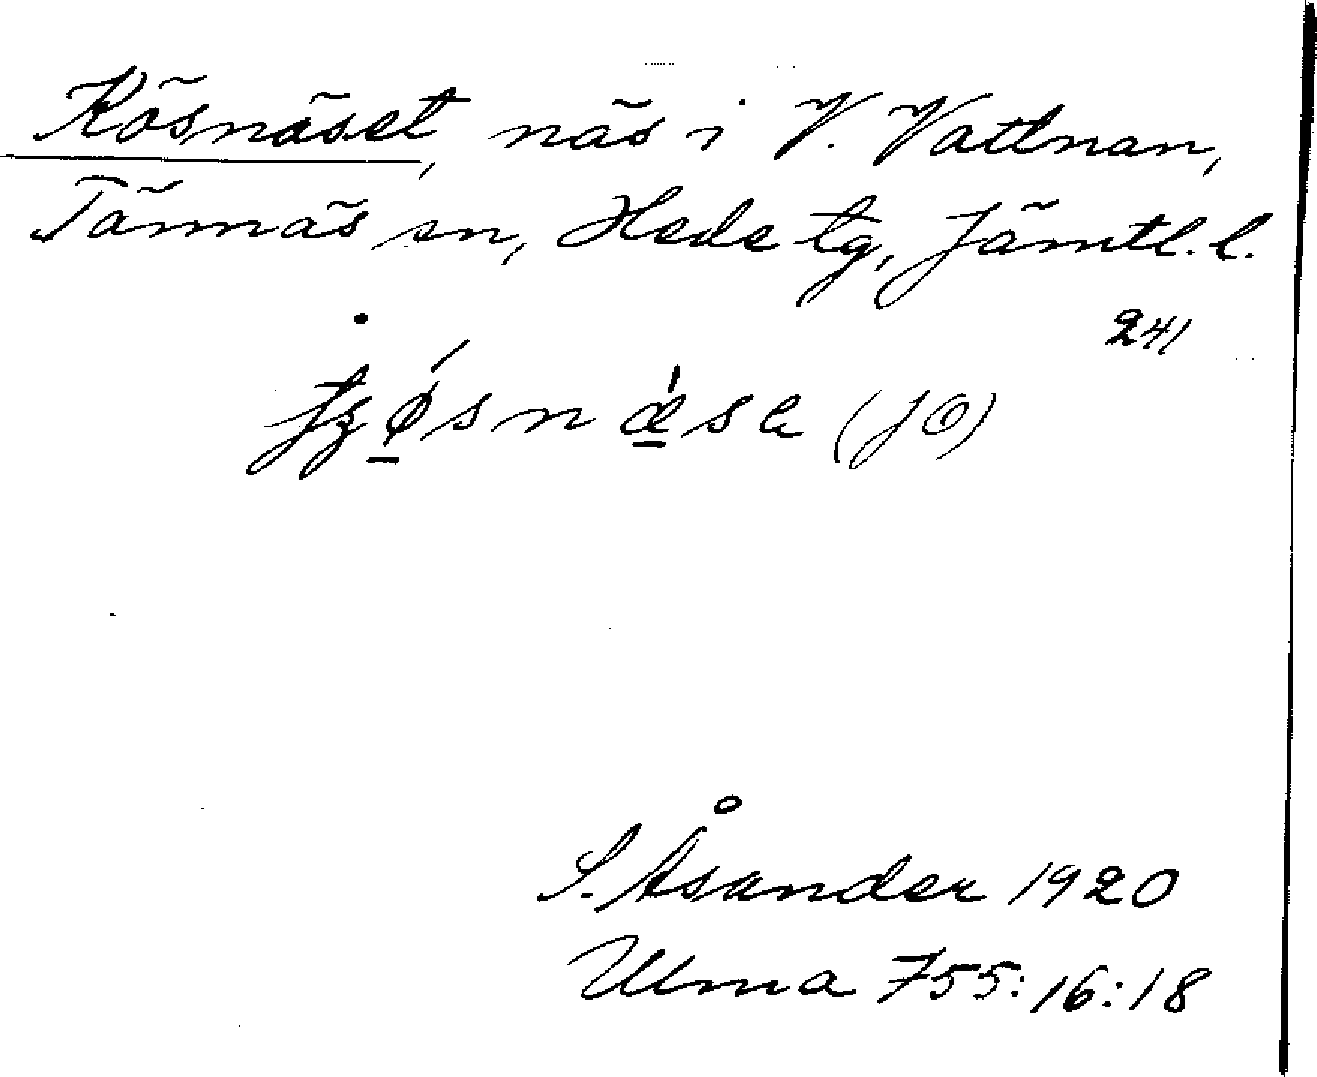 Kösnäset, näs i V. Vattnan,
Tännäs sn, Hede tg, Jämtl. l.
241
S. Åsander 1920
Ulma 755:16:18